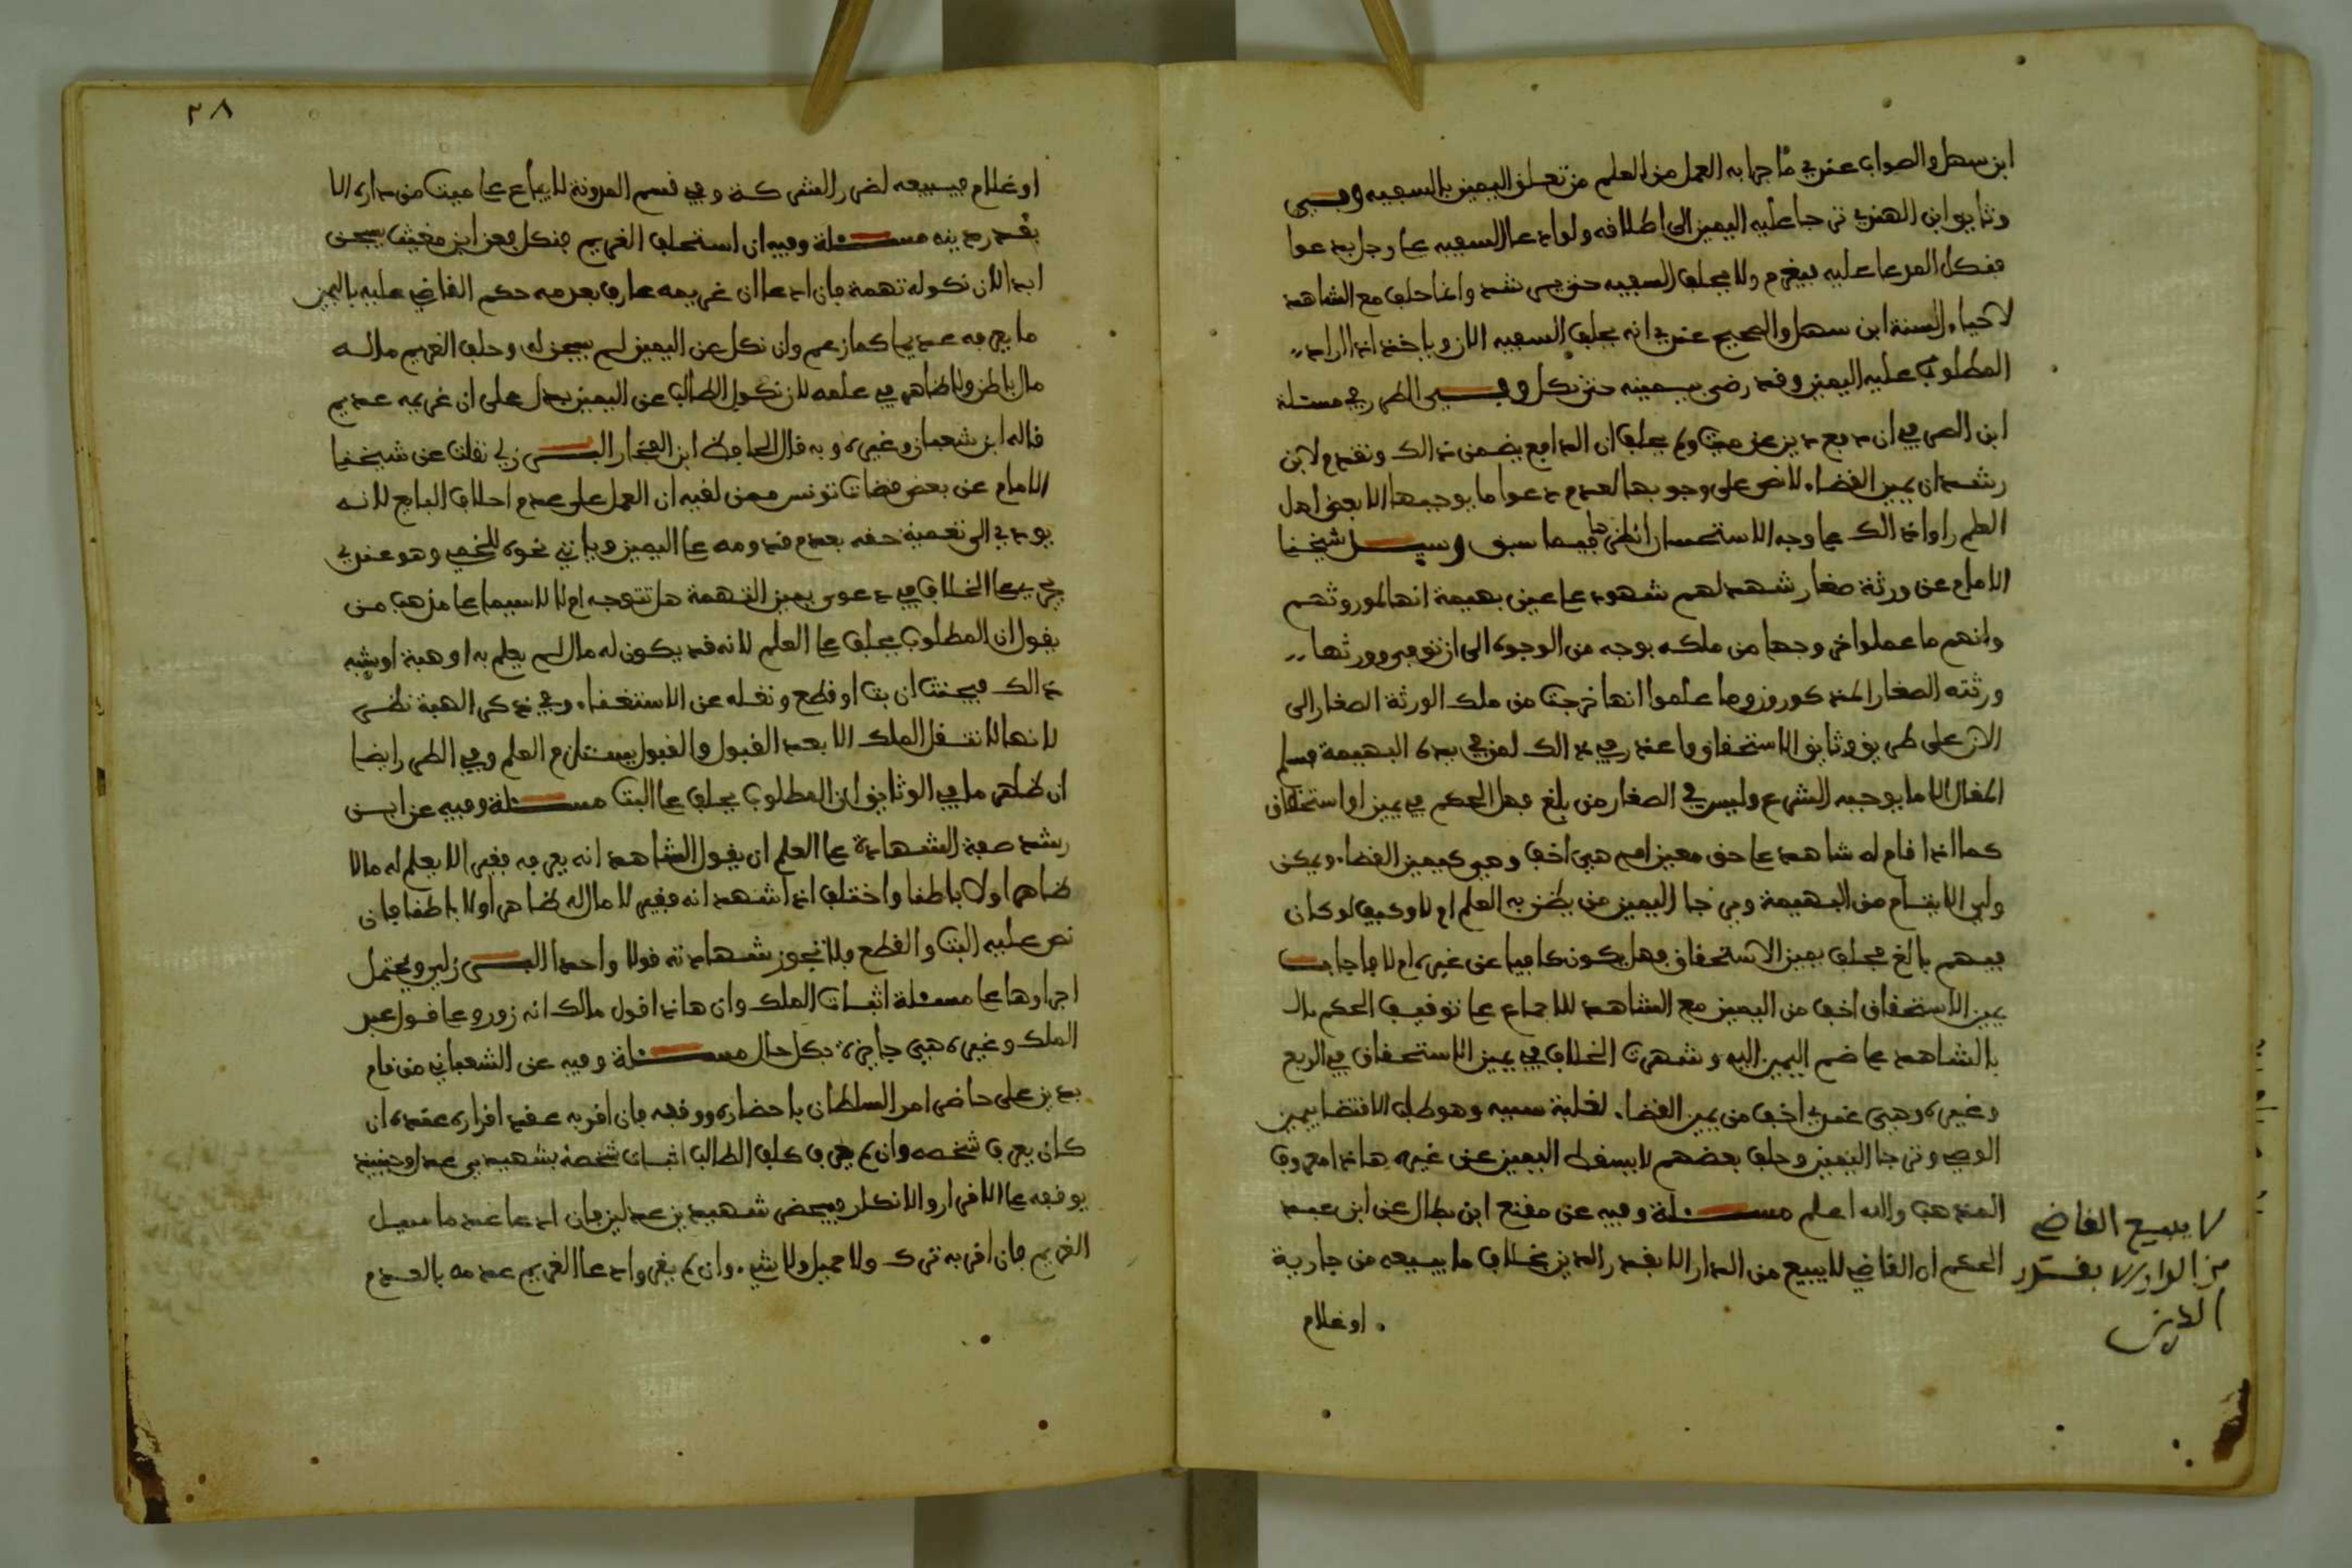 ابن سهل والصواب عندي ما جرا به العمل من العلم من تعلق اليمين بالسفيه وفي
وثايق ابن الهندي ترجا عليه اليمين الى اطلافه ولو ادعا السفيه على رجل بدعوا
فنكل المدعا عليه فيغرم ولا يحلف السفيه حتى يرشد وانما حلف مع الشاهد
لاحياء السنة ابن سهل والصحيح عندي انه يحلف السفيه الان وياخذ اذا اراد
المطلوب عليه اليمين وقد رضي بيمينه حتى نكل وفي الطرر في مسئلة
ابن العربي ان دفع دين عن ميت ولم يحلف ان الدافع يضمن ذالك وتقدم لابن
رشد ان يمين القضاء لا نص على وجوبها لعدم دعوا ما يوجبها الا بعض اهل
العلم راوا ذالك على وجه الاستحسان انظرها فيما سبق وسيل شيخنا
الامام عن ورثة صغار شهد لهم شهود على عين بهيمة انها لموروثهم
وانهم ما عملوا خروجها من ملكه بوجه من الوجوه الى ان توفي وورثها
ورثته الصغار المذكورون وما علموا انها خرجت من ملك الورثة الصغار الى
الان على طريق وثايق الاستحقاق واعذر في ذالك لمن في يده البهيمة فسلم
المقال الا ما يوجبه الشرع وليس في الصغار من بلغ فهل الحكم في يمين الاستحقاق
كما اذا قام له شاهد على حق معين ام هي اخف وهي كيمين القضاء ويمكن
ولي الايتام من البهيمة وترجا اليمين من يظن به العلم ام لا وكيف لو كان
فيهم بالغ فحلف يمين الاستحقاق فهل يكون كافيا عن غيره ام لا فاجاب
يمين الاستحقاق اخف من اليمين مع الشاهد للاجماع على توقيف الحكم بال
بالشاهد على ضم اليمين اليه وشهرت الخلاف في يمين الاستحقاق في الربع
وغيره وهي عندي اخف من يمين القضاء لغلبة سببه وهو طلب الاقتضا بيمين
الوصي وترجا اليمين وحلف بعضهم لا يسقط اليمين عن غيره هاذا معروف
المذهب والله اعلم مسئلة وفيه عن مقنع ابن بطال عن ابن عبد
الحكم ان القاضي لا يبيع من الدار الا بقدر الدين بخلاف ما يبيعه من جارية
او غلام
لا يبيع القاضي
من الدار الا بقدر
الدين
٢٨
او غلام فيبيعه لضرر الشركة وفي قسم المدونة لا يباع على ميت من داره الا
بقدر دينه مسئلة وفيه ان استحلف الغريم فنكل فعن ابن مغيث يسجن
ابدا لان نكوله تهمة فان ادعا ان غريمه عارف بعدمه حكم القاضي عليه باليمين
ما يعرفه عديما كما زعم وان نكل عن اليمين لم يسجن له وحلف الغريم ماله
مال باطن ولا ظاهر في علمه لان نكول الطالب عن اليمين يدل على ان غريمه عديم
قاله ابن شعبان وغيره وبه قال الحافظ ابن الفخار البرزلي نقلت عن شيخنا
الامام عن بعض قضات تونس ممن لقيه ان العمل على عدم احلاف البايع لانه
يودي الى تعمية حقه بعدم قدومه على اليمين وياتي نحوه للخمي وهو عندي
يجري على الخلاف في دعوى يمين التهمة هل تتوجه ام لا لا سيما على مذهب من
يقول ان المطلوب يحلف على العلم لانه قد يكون له مال لم يعلم به او هبة او شبه
ذالك فيحنث ان بت او قطع ونقله عن الاستغناء وفي ذكر الهبة نظر
لانها لا تنقل الملك الا بعد القبول والقبول يستلزم العلم وفي الطرر ايضا
ان ظاهر ما في الوثايق ان المطلوب يحلف على البت مسئلة وفيه عن ابن
رشد صفة الشهادة على العلم ان يقول الشاهد انه يعرفه فقير الا يعلم له مالا
ظاهرا ولا باطنا واختلف اذا شهد انه فقير لا مال له ظاهرا ولا باطنا فان
نص عليه البت والقطع فلا تجوز شهادته قولا واحدا البرزلي ويحتمل
اجراوها على مسئلة اثبات الملك وان هاذا قول مالك انه زور وعلى قول عبد
الملك وغيره هي جايزة بكل حال مسئلة وفيه عن الشعباني من قام
بدين على حاضر امر السلطان باحضاره ووقفه فان اقر به عقد اقراره عنده ان
كان يعرف شخصه وان لم يعرف كلف الطالب اثبات شخصه بشهيدي عدل وحينيذ
يوقفه على الاقرار والانكار فيحضر شهيدين عدلين فان ادعا عند ما سيل
الغريم فان اقر به ترك ولا حميل ولا شيء وان لم يقر وادعا الغريم عدمه بالعدم